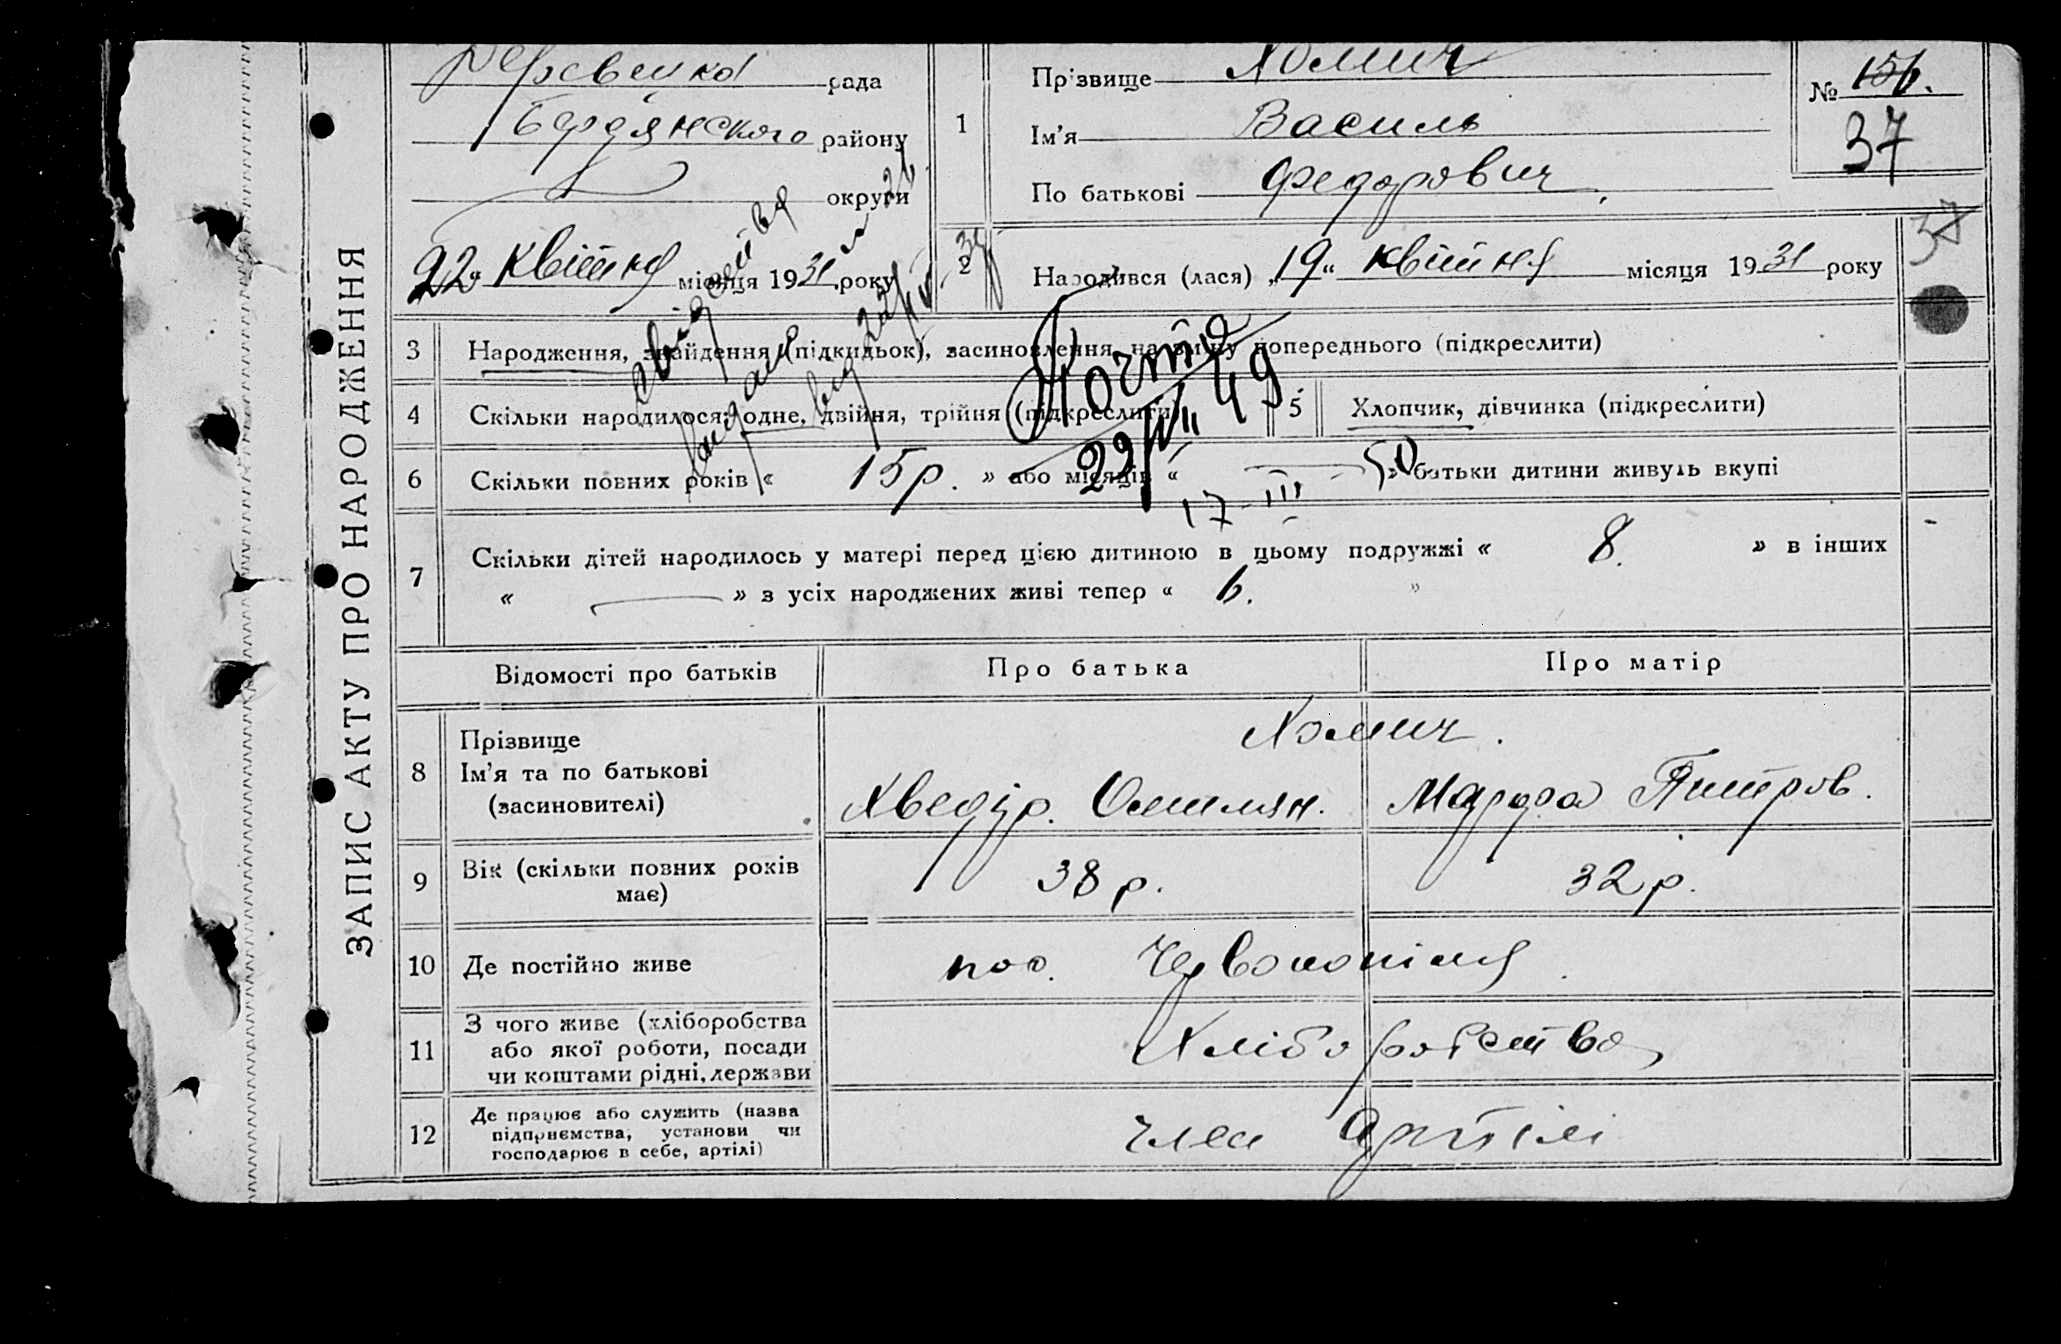 рада
Бердянского району
округи
22 квітня місяця 1931 року
№ 156.
37
1 Прізвище Хомич
Ім’я Василь
По батькові Федорович
37
2 Народився (лася) „19“ квітня місяця 1931 року
37
ЗАПИС АКТУ ПРО НАРОДЖЕННЯ
3 Народження, знайдення (підкидьок), засиновлення, на зміну попереднього (підкреслити)
4 Скільки народилося: одне, двійня, трійня (підкреслити)
5 Хлопчик, дівчинка (підкреслити)
Почта
29/VII 49
6 Скільки повних років « 15 р. » або місяців « » батьки дитини живуть вкупі
17-III 50
7 Скільки дітей народилось у матері перед цією дитиною в цьому подружжі « 8. » в інших
« — » з усіх народжених живі тепер « 6. »
Відомості про батьків Про батька Про матір
8 Прізвище Хомич.
Ім’я та по батькові Хведір. Омилян. Марфа Питров.
(засиновителі)
9 Вік (скільки повних років має) 38 р. 32 р.
10 Де постійно живе пос. Червонопілля
11 З чого живе (хліборобства
або якої роботи, посади
чи коштами рідні, держави
Хліборобство
12 Де працює або служить (назва
підприємства, установи чи
господарює в себе, артілі)
член Артілі